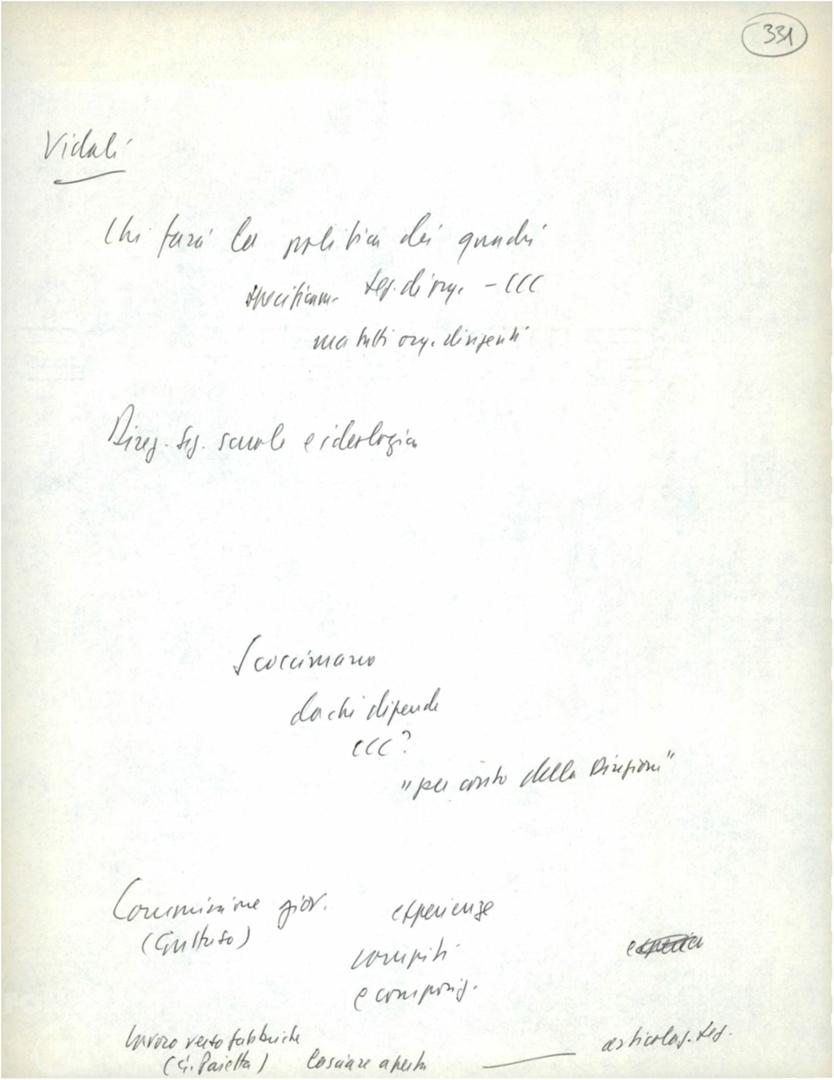 331
Vidali
Chi farà la politica dei quadri
specificam. Seg. di org. - CCC
ma tutti org. dirigenti
Direz. Sez. scuole e ideologia
Scoccimarro
da chi dipende
CCC?
"per conto della Direzione"
Commissione giov. esperienze
(Guttuso)
compiti
e composiz.
lavoro verso fabbriche
(G. Pajetta) lasciare aperta articolaz. seg.